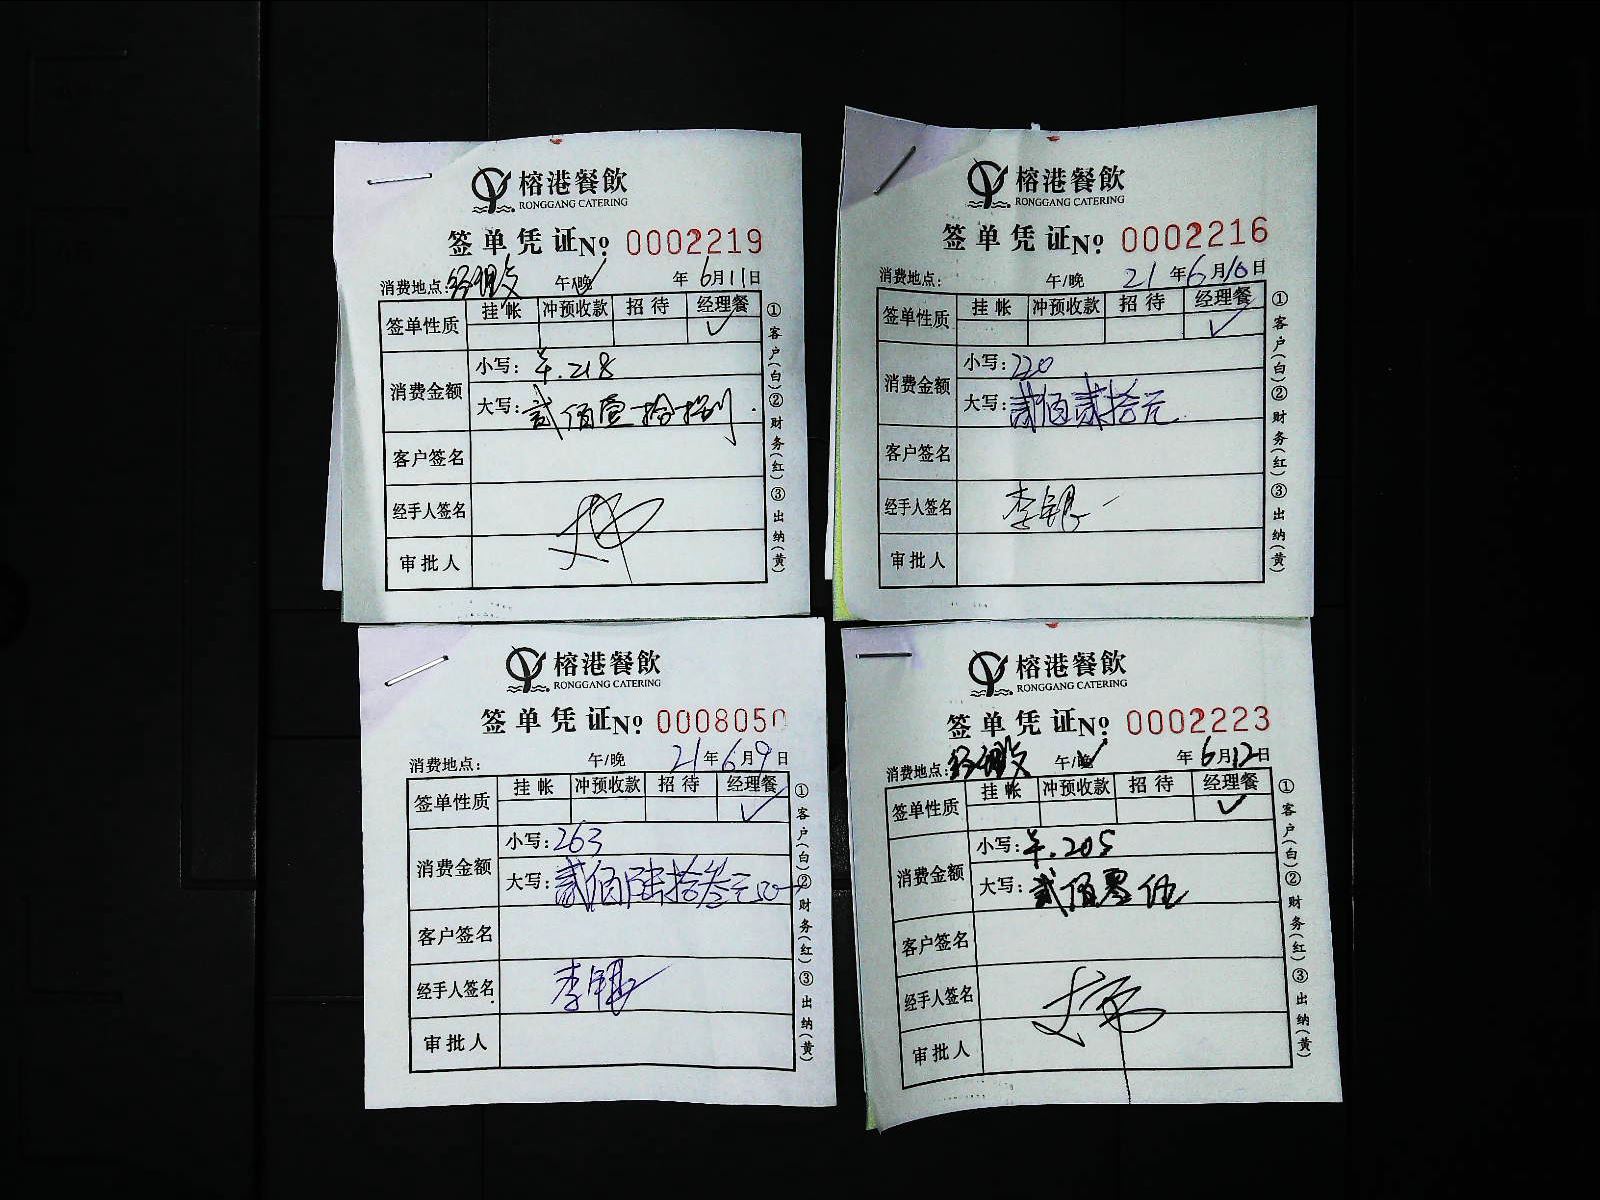 榕港餐飲
RONGGANG CATERING
签单凭证№ 0002219
消费地点: 经理 午/晚 年6月11日
签单性质 挂帐 冲预收款 招待 经理餐
✓
消费金额 小写: ¥.218
大写: 贰佰壹拾捌
客户签名
经手人签名
审批人
①客户(白)②财务(红)③出纳(黄)
榕港餐飲
RONGGANG CATERING
签单凭证№ 0002216
消费地点: 午/晚 21年6月10日
签单性质 挂帐 冲预收款 招待 经理餐
✓
消费金额 小写: 220
大写: 贰佰贰拾元
客户签名
经手人签名 李银
审批人
①客户(白)②财务(红)③出纳(黄)
榕港餐飲
RONGGANG CATERING
签单凭证№ 0008050
消费地点: 午/晚 21年6月9日
签单性质 挂帐 冲预收款 招待 经理餐
✓
消费金额 小写: 263
大写: 贰佰陆拾叁元
客户签名
经手人签名 李银
审批人
①客户(白)②财务(红)③出纳(黄)
榕港餐飲
RONGGANG CATERING
签单凭证№ 0002223
消费地点: 经理 午/晚 年6月12日
签单性质 挂帐 冲预收款 招待 经理餐
✓
消费金额 小写: ¥.205
大写: 贰佰零伍
客户签名
经手人签名
审批人
①客户(白)②财务(红)③出纳(黄)